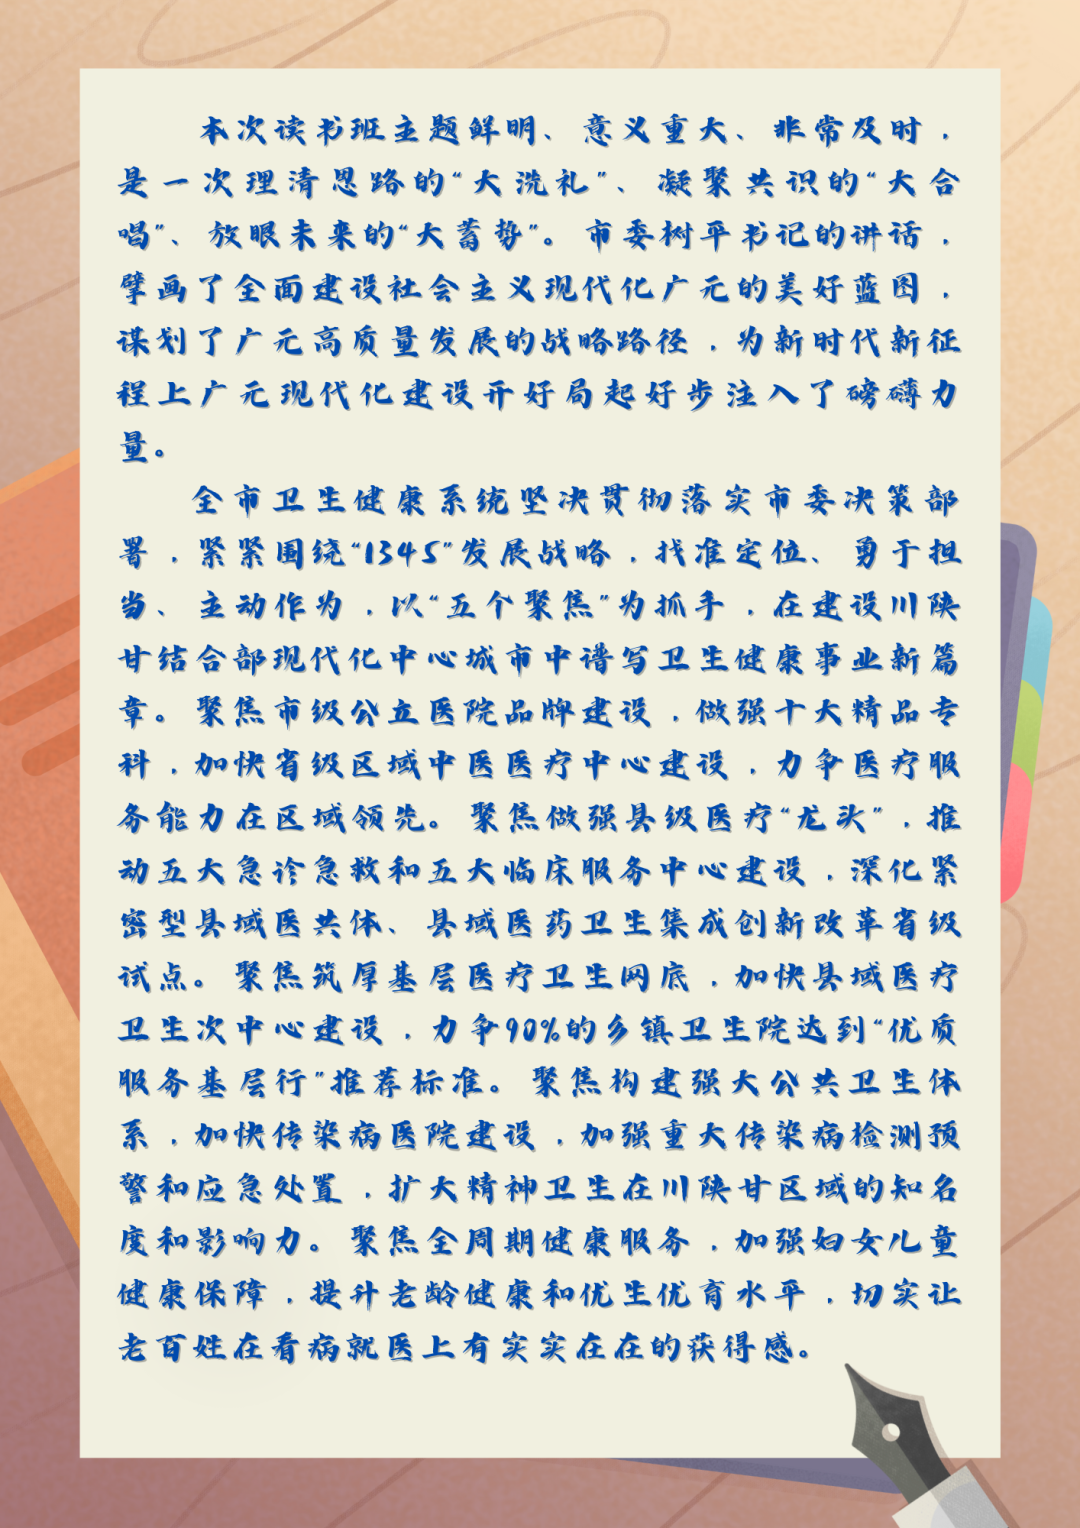 本次读书班主题鲜明、意义重大、非常及时，
是一次理清思路的“大洗礼”、凝聚共识的“大合
唱”、放眼未来的“大蓄势”。市委树平书记的讲话，
擘画了全面建设社会主义现代化广元的美好蓝图，
谋划了广元高质量发展的战略路径，为新时代新征
程上广元现代化建设开好局起好步注入了磅礴力
量。
全市卫生健康系统坚决贯彻落实市委决策部
署，紧紧围绕“1345”发展战略，找准定位、勇于担
当、主动作为，以“五个聚焦”为抓手，在建设川陕
甘结合部现代化中心城市中谱写卫生健康事业新篇
章。聚焦市级公立医院品牌建设，做强十大精品专
科，加快省级区域中医医疗中心建设，力争医疗服
务能力在区域领先。聚焦做强县级医疗“龙头”，推
动五大急诊急救和五大临床服务中心建设，深化紧
密型县域医共体、县域医药卫生集成创新改革省级
试点。聚焦筑厚基层医疗卫生网底，加快县域医疗
卫生次中心建设，力争90%的乡镇卫生院达到“优质
服务基层行”推荐标准。聚焦构建强大公共卫生体
系，加快传染病医院建设，加强重大传染病检测预
警和应急处置，扩大精神卫生在川陕甘区域的知名
度和影响力。聚焦全周期健康服务，加强妇女儿童
健康保障，提升老龄健康和优生优育水平，切实让
老百姓在看病就医上有实实在在的获得感。